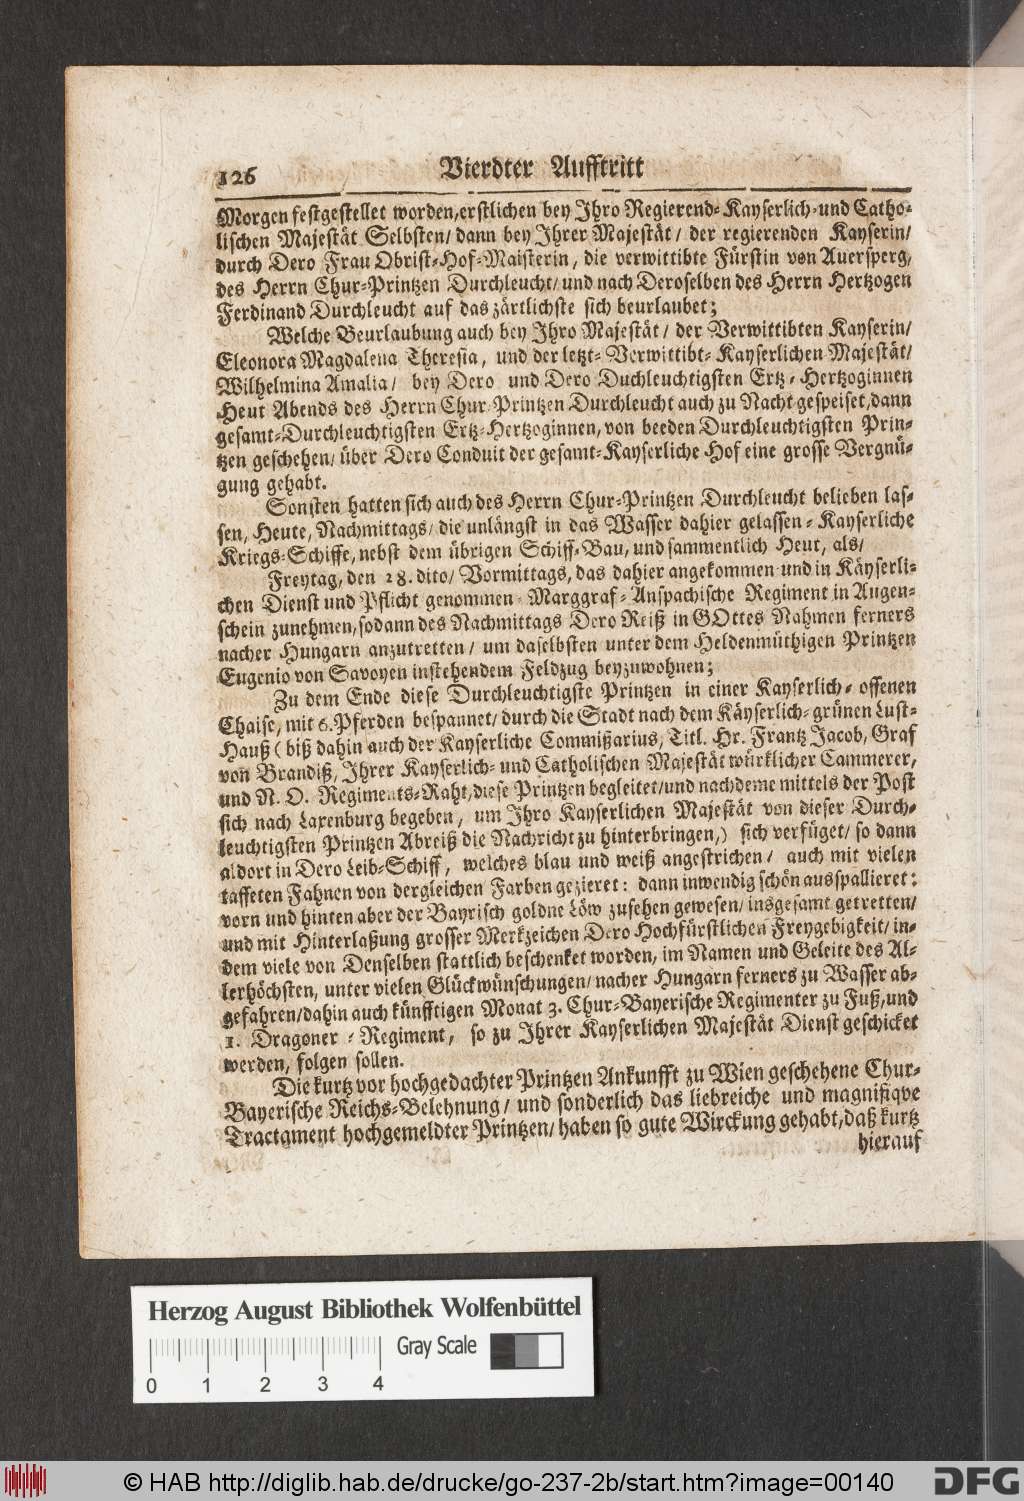 126
Vierdter Aufftritt
Morgen festgestellet worden, erstlichen bey Jhro Regierend-Kayserlich-und Catho-
lischen Majestät Selbsten/ dann bey Jhrer Majestät/ der regierenden Kayserin/
durch Dero Frau Obrist-Hof-Maisterin, die verwittibte Fürstin von Auersperg,
des Herrn Chur-Printzen Durchleucht/ und nach Deroselben des Herrn Hertzogen
Ferdinand Durchleucht auf das zärtlichste sich beurlaubet;
Welche Beurlaubung auch bey Jhro Majestät/ der Verwittibten Kayserin/
Eleonora Magdalena Theresia, und der letzt-Verwittibt-Kayserlichen Majestät/
Wilhelmina Amalia/ bey Dero und Dero Duchleuchtigsten Ertz-Hertzoginnen
Heut Abends des Herrn Chur-Printzen Durchleucht auch zu Nacht gespeiset, dann
gesamt-Durchleuchtigsten Ertz-Hertzoginnen, von beeden Durchleuchtigsten Prin-
tzen geschehen/ über Dero Conduit der gesamt-Kayserliche Hof eine grosse Vergnü-
gung gehabt.
Sonsten hatten sich auch des Herrn Chur-Printzen Durchleucht belieben las-
sen, Heute, Nachmittags/ die unlängst in das Wasser dahier gelassen-Kayserliche
Kriegs-Schiffe, nebst dem übrigen Schiff-Bau, und sammentlich Heut, als/
Freytag, den 28. dito/ Vormittags, das dahier angekommen und in Käyserli-
chen Dienst und Pflicht genommen-Marggraf-Anspachische Regiment in Augen-
schein zunehmen, sodann des Nachmittags Dero Reiß in GOttes Nahmen ferners
nacher Hungarn anzutretten/ um daselbsten unter dem Heldenmüthigen Printzen
Eugenio von Savoyen instehendem Feldzug beyzuwohnen;
Zu dem Ende diese Durchleuchtigste Printzen in einer Kayserlich-offenen
Chaise, mit 6. Pferden bespannet/ durch die Stadt nach dem Käyserlich-grünen Lust-
Hauß (biß dahin auch der Kayserliche Commißarius, Titl. Hr. Frantz Jacob, Graf
von Brandiß, Jhrer Kayserlich-und Catholischen Majestät würklicher Cammerer,
und N. O. Regiments-Raht, diese Printzen begleitet/ und nachdeme mittels der Post
sich nach Laxenburg begeben, um Jhro Kayserlichen Majestät von dieser Durch-
leuchtigsten Printzen Abreiß die Nachricht zu hinterbringen,) sich verfüget/ so dann
aldort in Dero Leib-Schiff, welches blau und weiß angestrichen/ auch mit vielen
taffeten Fahnen von dergleichen Farben gezieret: dann inwendig schön ausspallieret:
vorn und hinten aber der Bayrisch goldne Löw zusehen gewesen/ insgesamt getretten/
und mit Hinterlaßung grosser Merkzeichen Dero Hochfürstlichen Freygebigkeit/ in-
dem viele von Denselben stattlich beschenket worden, im Namen und Geleite des Al-
lerhöchsten, unter vielen Glückwünschungen/ nacher Hungarn ferners zu Wasser ab-
gefahren/ dahin auch künfftigen Monat 3. Chur-Bayerische Regimenter zu Fuß, und
1. Dragoner-Regiment, so zu Jhrer Kayserlichen Majestät Dienst geschicket
werden, folgen sollen.
Die kurtz vor hochgedachter Printzen Ankunfft zu Wien geschehene Chur-
Bayerische Reichs-Belehnung/ und sonderlich das liebreiche und magnifiqve
Tractament hochgemeldter Printzen/ haben so gute Wirckung gehabt, daß kurtz
hierauf
Herzog August Bibliothek Wolfenbüttel
Gray Scale
0 1 2 3 4
© HAB http://diglib.hab.de/drucke/go-237-2b/start.htm?image=00140
DFG